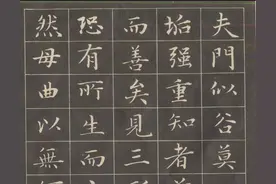 夫門似谷莫
垢强重知者
而善矣見三
恐有所生而
然母曲以無